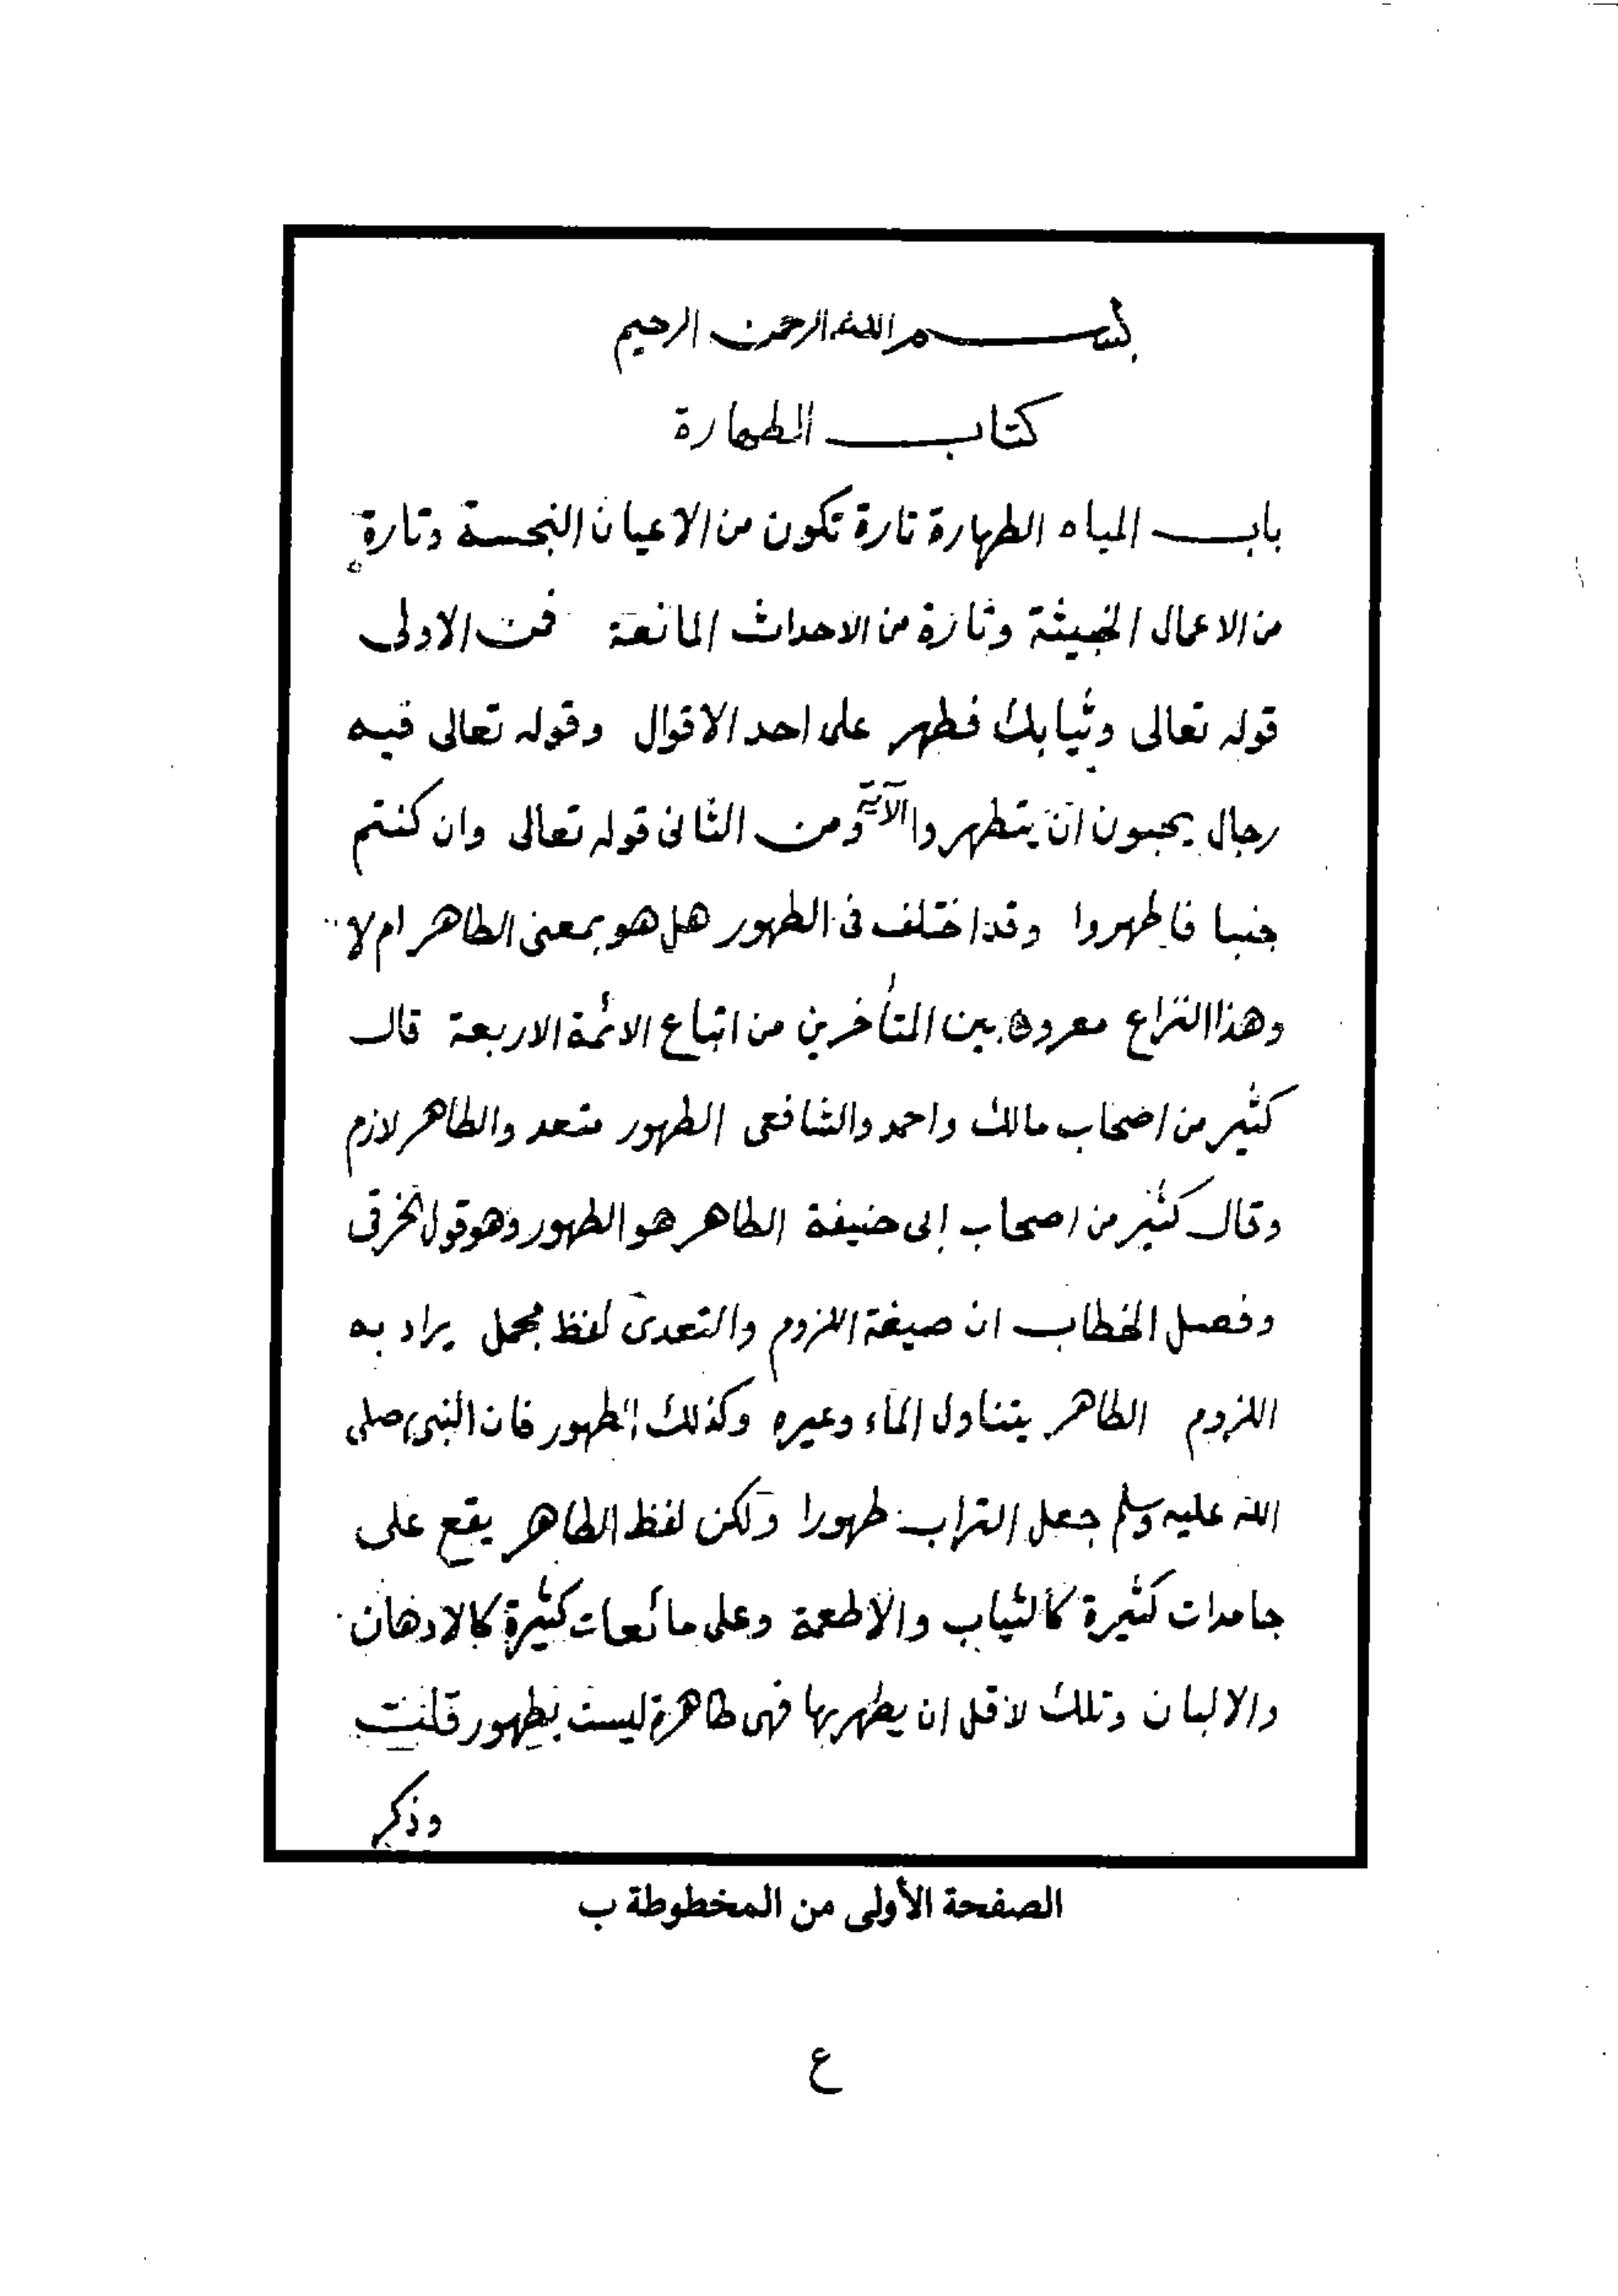 بسم الله الرحمن الرحيم
كتاب الطهارة
باب المياه الطهارة تارة تكون من الاعيان النجسة وتارة
من الاعمال الخبيثة وتارة من الاحداث المانعة فمن الاولى
قوله تعالى وثيابك فطهر على احد الاقوال وقوله تعالى فيه
رجال يحبون ان يتطهروا الآية ومن الثانى قوله تعالى وان كنتم
جنبا فاطهروا وقد اختلف فى الطهور هل هو بمعنى الطاهر ام لا
وهذا النزاع معروف بين المتأخرين من اتباع الائمة الاربعة قال
كثير من اصحاب مالك واحمد والشافعى الطهور متعد والطاهر لازم
وقال كثير من اصحاب ابى حنيفة الطاهر هو الطهور وهو قول الخرقى
وفصل الخطاب ان صيغة اللزوم والتعدى لفظ مجمل يراد به
اللزوم الطاهر يتناول الماء وغيره وكذلك الطهور فان النبى صلى
الله عليه وسلم جعل التراب طهورا ولكن لفظ الطاهر يقع على
جامدات كثيرة كالثياب والاطعمة وعلى مائعات كثيرة كالادهان
والالبان وتلك لا قل ان يطهر بها فهى طاهرة ليست بطهور قلت
وذكر
الصفحة الأولى من المخطوطة ب
ع